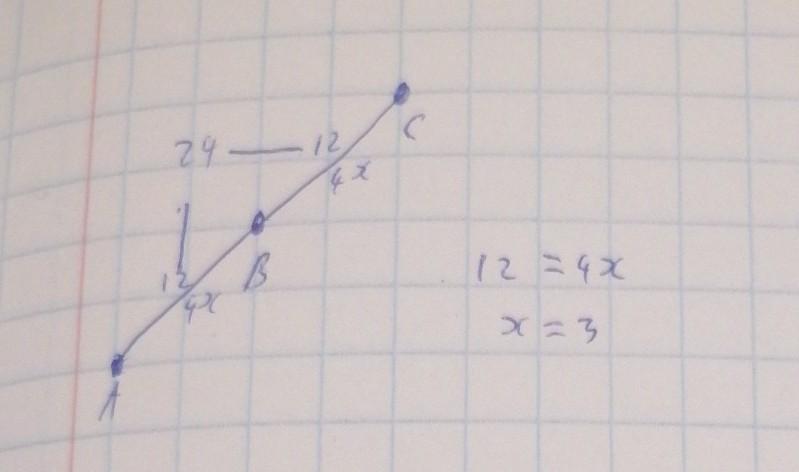 C
24 — 12
4x
B
12
4x
A
12 = 4x
x = 3